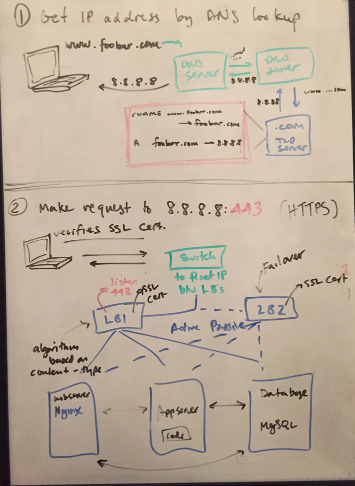 ① Get IP address by DNS lookup
www.foobar.com
DNS
server
DNS
server
8.8.8.8
8.8.8.8
8.8.8.8
www....com
CNAME www.foobar.com
→ foobar.com
A foobar.com → 8.8.8.8
.com
TLD
server
② Make request to 8.8.8.8:443 (HTTPS)
verifies SSL cert.
Switch
to float IP
btw LBs
Failover
listen
443
SSL
cert
SSL cert
LB1
LB2
Active Passive
algorithm
based on
content-type
webserver
Nginx
Appserver
code
Database
MySQL